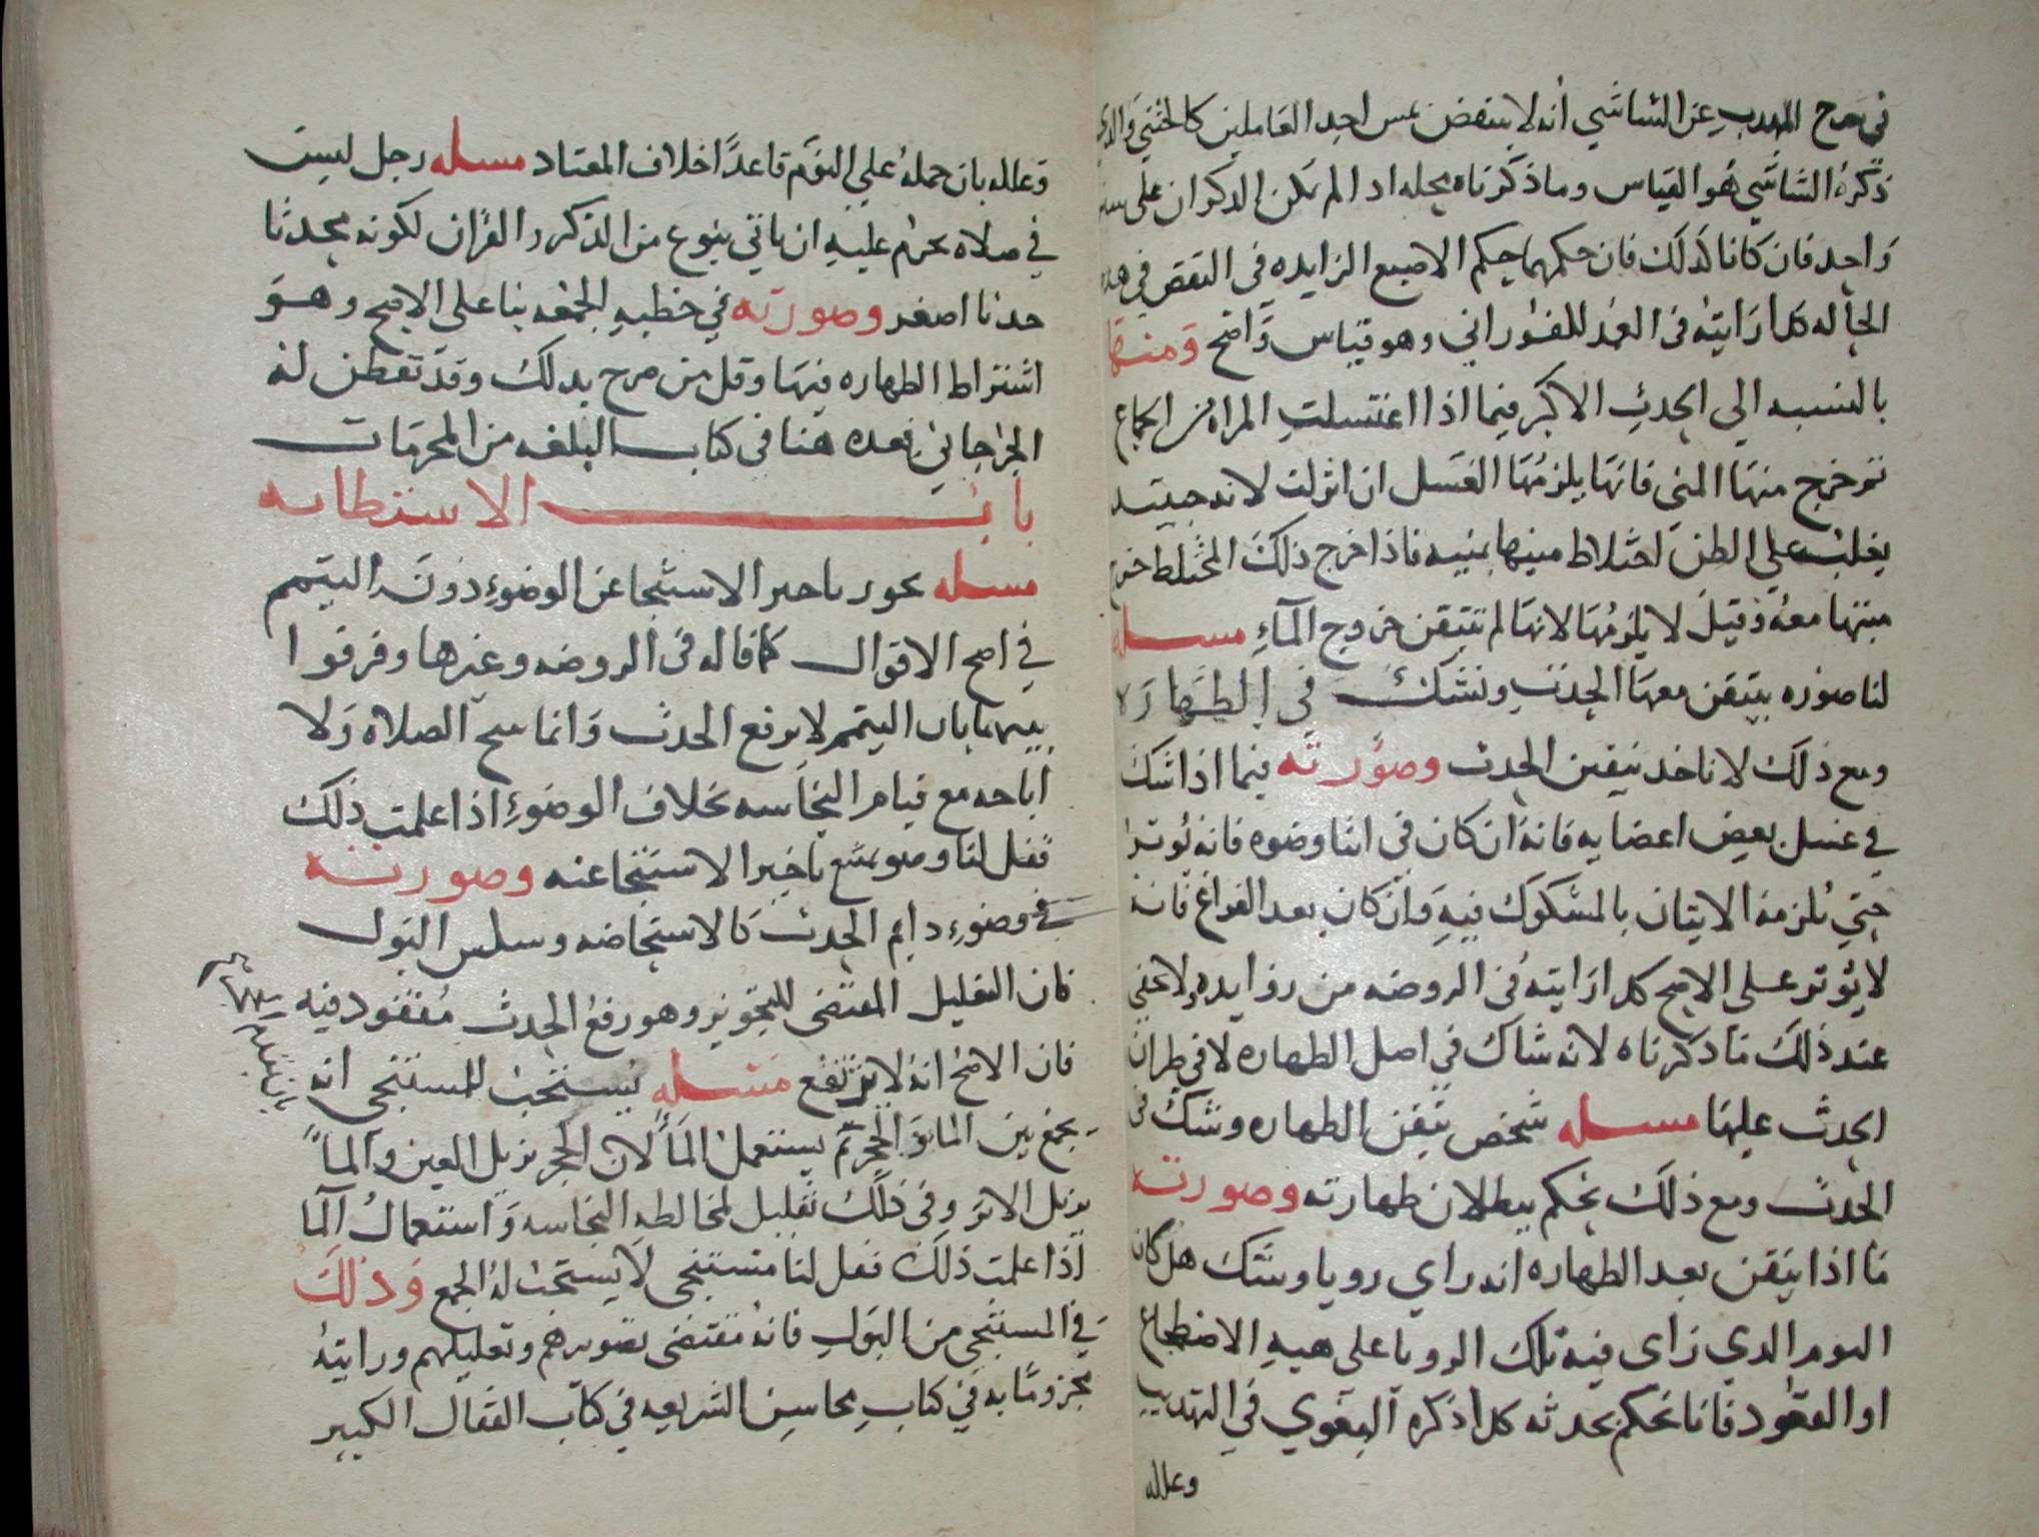 في شرح المهذب عن الشاشي أنه لا ينتقض بمس احد العاملين كالخنثي والذي
ذكره الشاشي هو القياس وما ذكرناه محله اذا لم يكن الذكران على سنن
واحد فان كانا كذلك فان حكمهما حكم الاصبع الزايده في النقض في هذه
الحاله كذا رايته في العمد للفوراني وهو قياس واضح ومنها
بالنسبه الى الحدث الاكبر فيما اذا اغتسلت المراه من الجماع
ثم خرج منها المني فانها يلزمها الغسل ان انزلت لانه حينيذ
يغلب علي الظن اختلاط منيها بمنيه فاذا خرج ذلك المختلط خرج
منيها معه وقيل لا يلزمها لانها لم تتيقن خروج المآءِ مسله
لنا صوره يتيقن معها الحدث ونشك في الطهاره
ومع ذلك لا ناخذ بيقين الحدث وصورته فيما اذا شك
في غسل بعض اعضايه فانه ان كان في اثنا وضوه فانه يوثر
حتي يلزمه الاتيان بالمشكوك فيه وان كان بعد الفراغ فانه
لا يوثر على الاصح كذا رايته في الروضه من زوايده ولا يخفي
عند ذلك ما ذكرناه لانه شاك في اصل الطهاره لا في طران
الحدث عليها مسله شخص تيقن الطهاره وشك في
الحدث ومع ذلك يحكم ببطلان طهارته وصورته
ما اذا تيقن بعد الطهاره انه راي رويا وشك هل كان
النوم الذي راى فيه تلك الرويا على هيه الاضطجاع
او القعود فانا نحكم بحدثه كذا ذكره البغوي في التهذيب
وعلله
وعلله بان حمله علي النوم قاعدا خلاف المعتاد مسله رجل ليست
في صلاه يحرم عليه ان ياتي بنوع من الذكر والقران لكونه محدثا
حدثا اصغر وصورته في خطبه الجمعه بنا على الاصح وهو
اشتراط الطهاره فيها وقل من صرح بذلك وقد تفطن له
الجرجاني فعده هنا في كتاب البلغه من المحرمات
باب الاستطابه
مسله يجوز تاخير الاستنجا عن الوضوء دون التيمم
في اصح الاقوال كما قاله في الروضه وغيرها وفرقوا
بينهما بان التيمم لا يرفع الحدث وانما يبيح الصلاه ولا
اباحه مع قيام النجاسه بخلاف الوضوءِ اذا علمت ذلك
فقل لنا وضو يمتنع تاخير الاستنجا عنه وصورته
في وضوء دايم الحدث كالاستحاضه وسلس البول
فان التعليل المقتضى للتجويز وهو رفع الحدث مفقود فيه
فان الاصح انه لا يرتفع مسله يستحب للمستنجى انه
يجمع بين الما والحجر ثم يستعمل الما لان الحجر يزيل العين والما
يزيل الاثر وفى ذلك تقليل لمخالطه النجاسه واستعمال الما
اذا علمت ذلك فقل لنا مستنجى لا يستحب له الجمع وذلك
في المستنجى من البول فانه مقتضى تصويرهم وتعليلهم ورايته
مجزوما به في كتاب محاسن الشريعه في كتاب القفال الكبير